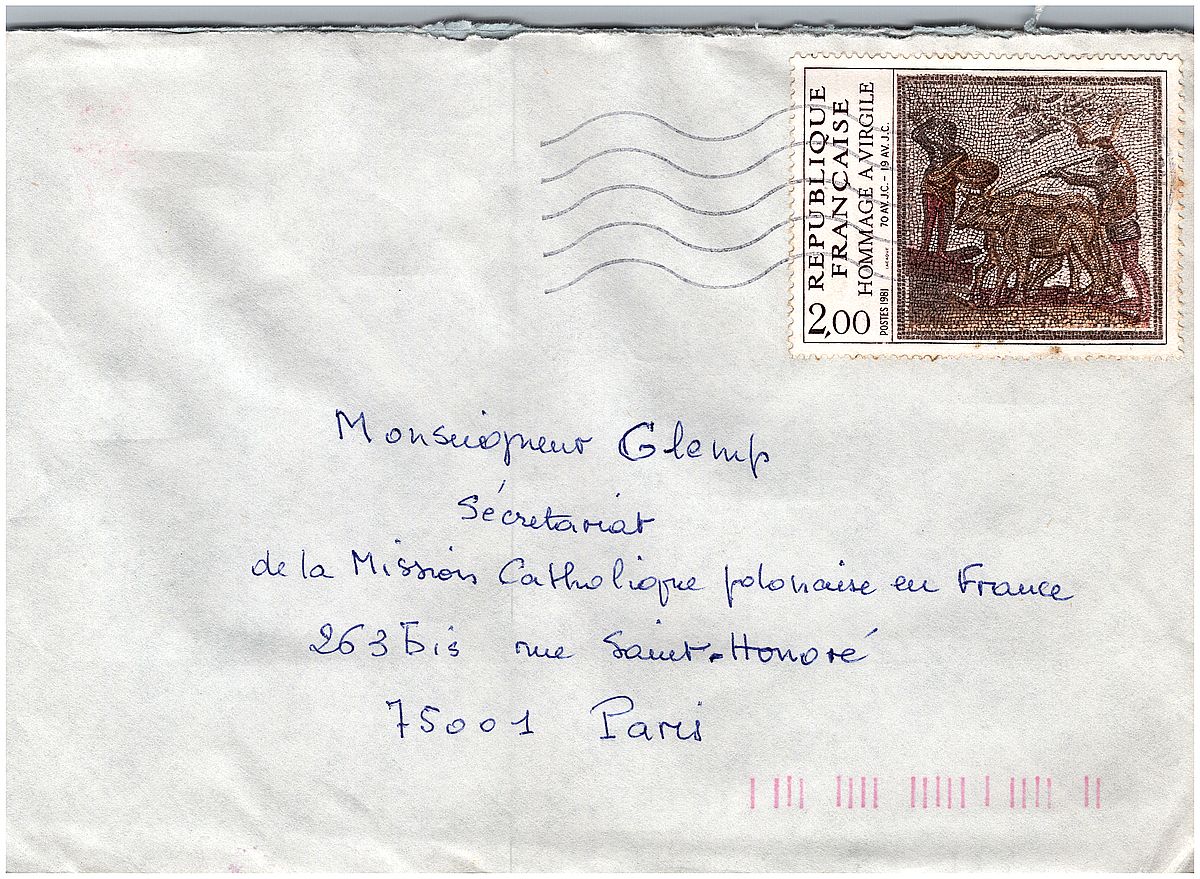 RÉPUBLIQUE
FRANÇAISE
HOMMAGE A VIRGILE
70 AV. J.C. – 19 AV. J.C.
2,00
POSTES 1981
Monseigneur Glemp
Sécretariat
de la Mission Catholique polonaise en France
263 Bis rue Saint-Honoré
75001 Paris